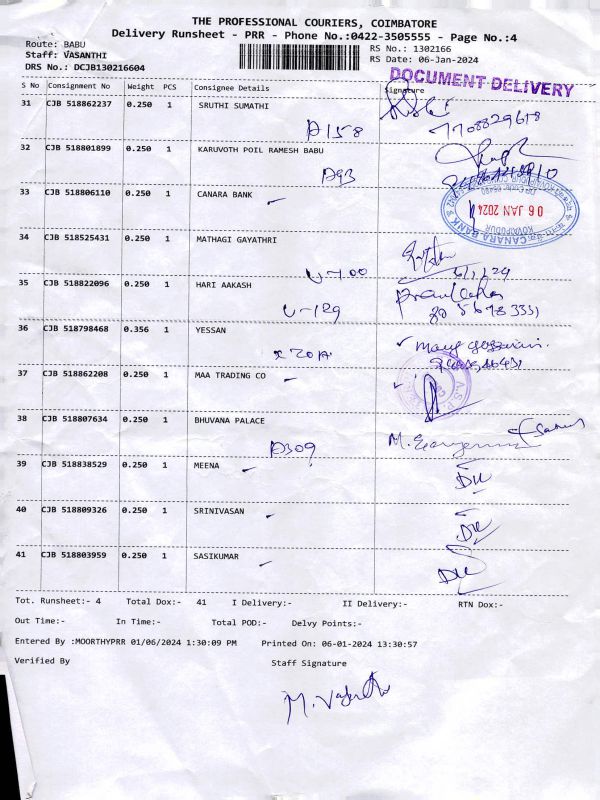 THE PROFESSIONAL COURIERS, COIMBATORE
Delivery Runsheet - PRR - Phone No.:0422-3505555 - Page No.:4
Route: BABU
RS No.: 1302166
Staff: VASANTHI
RS Date: 06-Jan-2024
DRS No.: DCJB130216604
DOCUMENT DELIVERY
S No Consignment No Weight PCS Consignee Details Signature
31 CJB 518862237 0.250 1 SRUTHI SUMATHI
A158 7708829618
32 CJB 518801899 0.250 1 KARUVOTH POIL RAMESH BABU
A93
33 CJB 518806110 0.250 1 CANARA BANK
CANARA BANK
06 JAN 2024
KOVAIPUDUR
34 CJB 518525431 0.250 1 MATHAGI GAYATHRI
U-100 6/1/24
35 CJB 518822096 0.250 1 HARI AAKASH
U-129
36 CJB 518798468 0.356 1 YESSAN
37 CJB 518862208 0.250 1 MAA TRADING CO
38 CJB 518807634 0.250 1 BHUVANA PALACE
A309
39 CJB 518838529 0.250 1 MEENA
40 CJB 518809326 0.250 1 SRINIVASAN
41 CJB 518803959 0.250 1 SASIKUMAR
Tot. Runsheet:- 4 Total Dox:- 41 I Delivery:- II Delivery:- RTN Dox:-
Out Time:- In Time:- Total POD:- Delvy Points:-
Entered By :MOORTHYPRR 01/06/2024 1:30:09 PM Printed On: 06-01-2024 13:30:57
Verified By Staff Signature